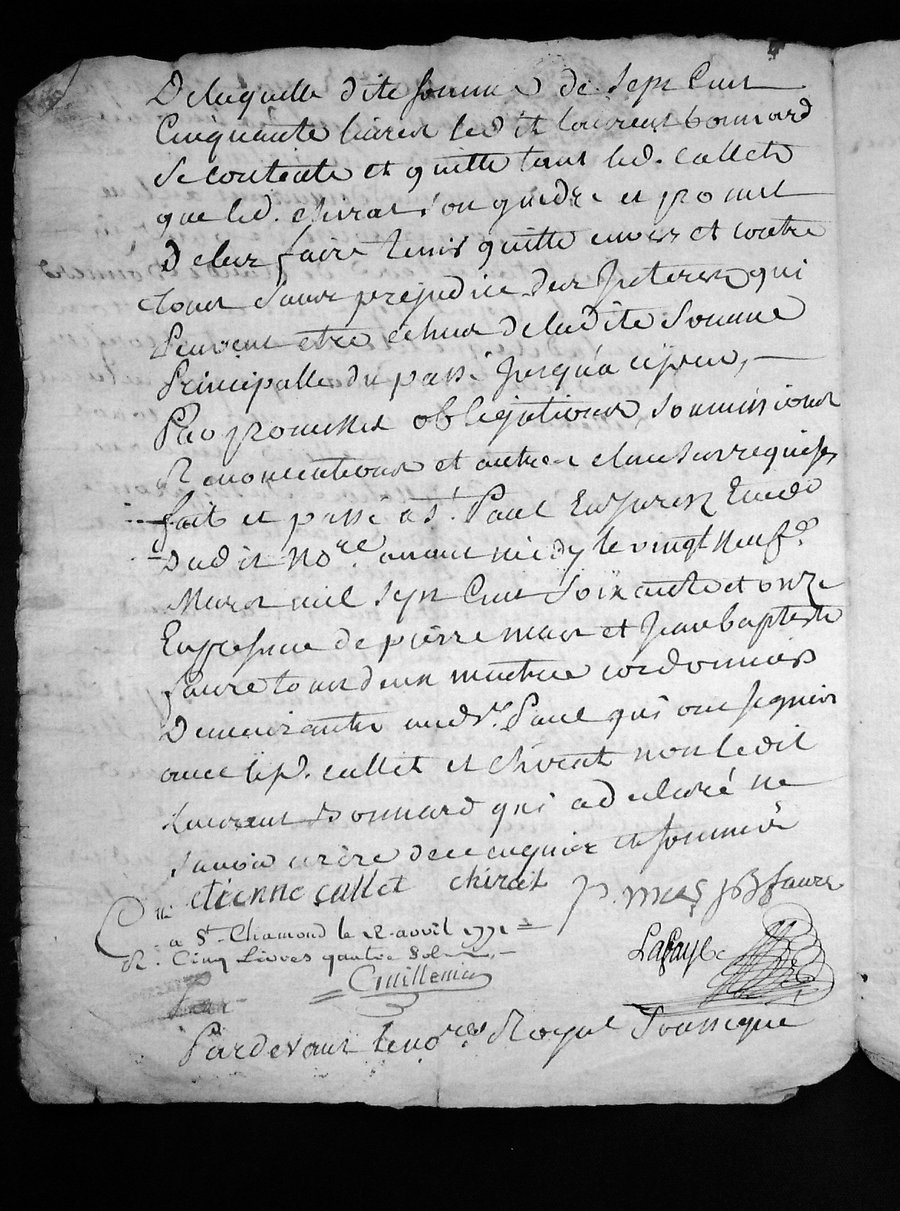 De laquelle dite somme de sept Cent
Cinquante livres led it laurent bonnard
Se contente et quitte tant led. callet
que led. chirat s'on gendre et promet
De leur faire tenir quitte envers et contre
tous Sans prejudice des Jnterets qui
Peuvent etre echus de ladite Somme
Principalle du passé Jusqu'a ce jour,
Par promesses obligations, soumissions
Renonciations et autres clauses requises
fait et passé a st. Paul En Jarez Etude
Dud it Nore. avant midy le vingt neuf.
Mars mil sept Cent Soixante et onze
En presence de pierre mas et Jean baptiste
faure tous deux maitre cordonniers
Demeurants aud st. Paul qui ont signés
avec led. callet et Chirat non ledit
Laurent Bonnard qui a declaré ne
Savoir ecrire de ce enquis et sommé
etienne callet chirat p. mas JB faure
Cllé a St. Chamond le 12 avril 1771
R. Cinq Livres quatre Sols
Guillemin
Lafaye
Pardevant le nore. Royal Soussigné